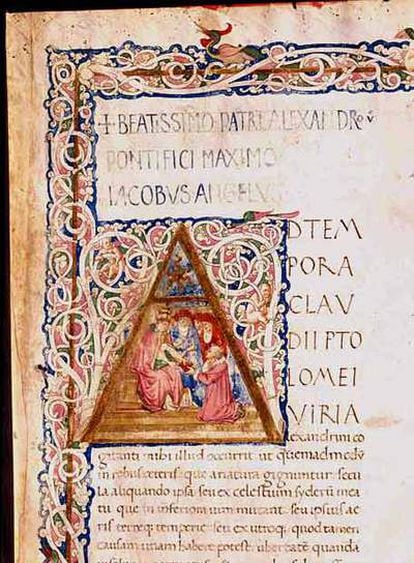 + BEATISSIMO PATRI ALEXANDRO V
PONTIFICI MAXIMO
IACOBVS ANGELVS
A
D TEM
PORA
CLAV
DII PTO
LOMEI
VIRIA
lexandrini co
gitanti mihi illud occurrit ut quemadmodũ
in robus ceteris que a natura gignuntur secu
la aliquando ipsa seu ex celestium syderũ mea
tu que in inferiora uim mutant seu ipsius ae
ris terreq; temperie seu ex utroq; quod tamen
causam unam habere potest ubertate quanda